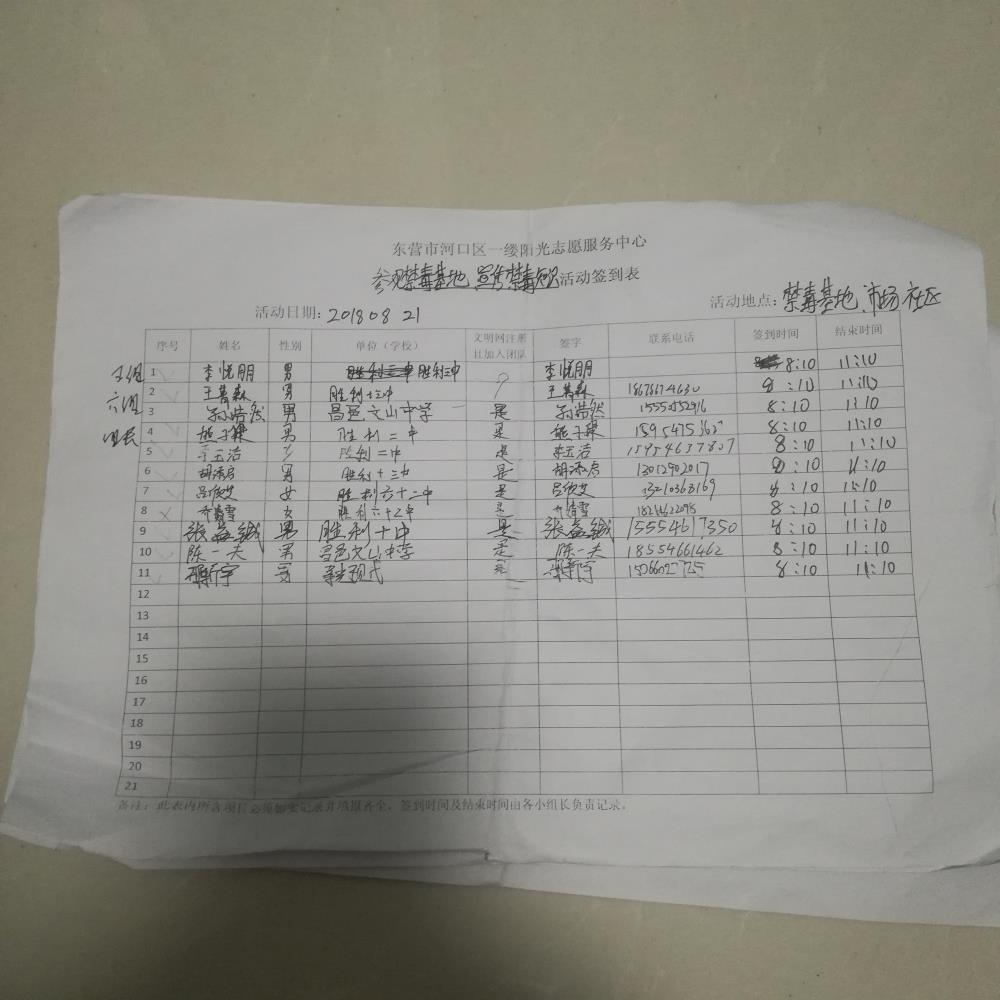 东营市河口区一缕阳光志愿服务中心
参观禁毒基地 宣传禁毒知识活动签到表
活动日期: 20180821 活动地点: 禁毒基地、市场社区
序号 姓名 性别 单位（学校） 文明网注册且加入团队 签字 联系电话 签到时间 结束时间
六组
组长
1 李悦朋 男 胜利三中 李悦朋 8:10 11:10
2 男 胜利十三中 8:10 11:10
3 孙浩然 男 昌邑文山中学 是 孙浩然 8:10 11:10
4 男 胜利二中 是 8:10 11:10
5 李玉洁 女 胜利二中 是 李玉洁 15954637807 8:10 11:10
6 男 胜利十三中 是 13012902017 8:10 11:10
7 吕欣艾 女 胜利六十二中 是 吕欣艾 13210368169 8:10 11:10
8 女 胜利六十二中 是 8:10 11:10
9 张益铖 男 胜利十中 是 张益铖 15554617350 8:10 11:10
10 陈一夫 男 昌邑文山中学 是 陈一夫 18554661462 8:10 11:10
11 男 是 8:10 11:10
12
13
14
15
16
17
18
19
20
21
备注：此表内所含项目必须如实记录并填报齐全，签到时间及结束时间由各小组长负责记录。